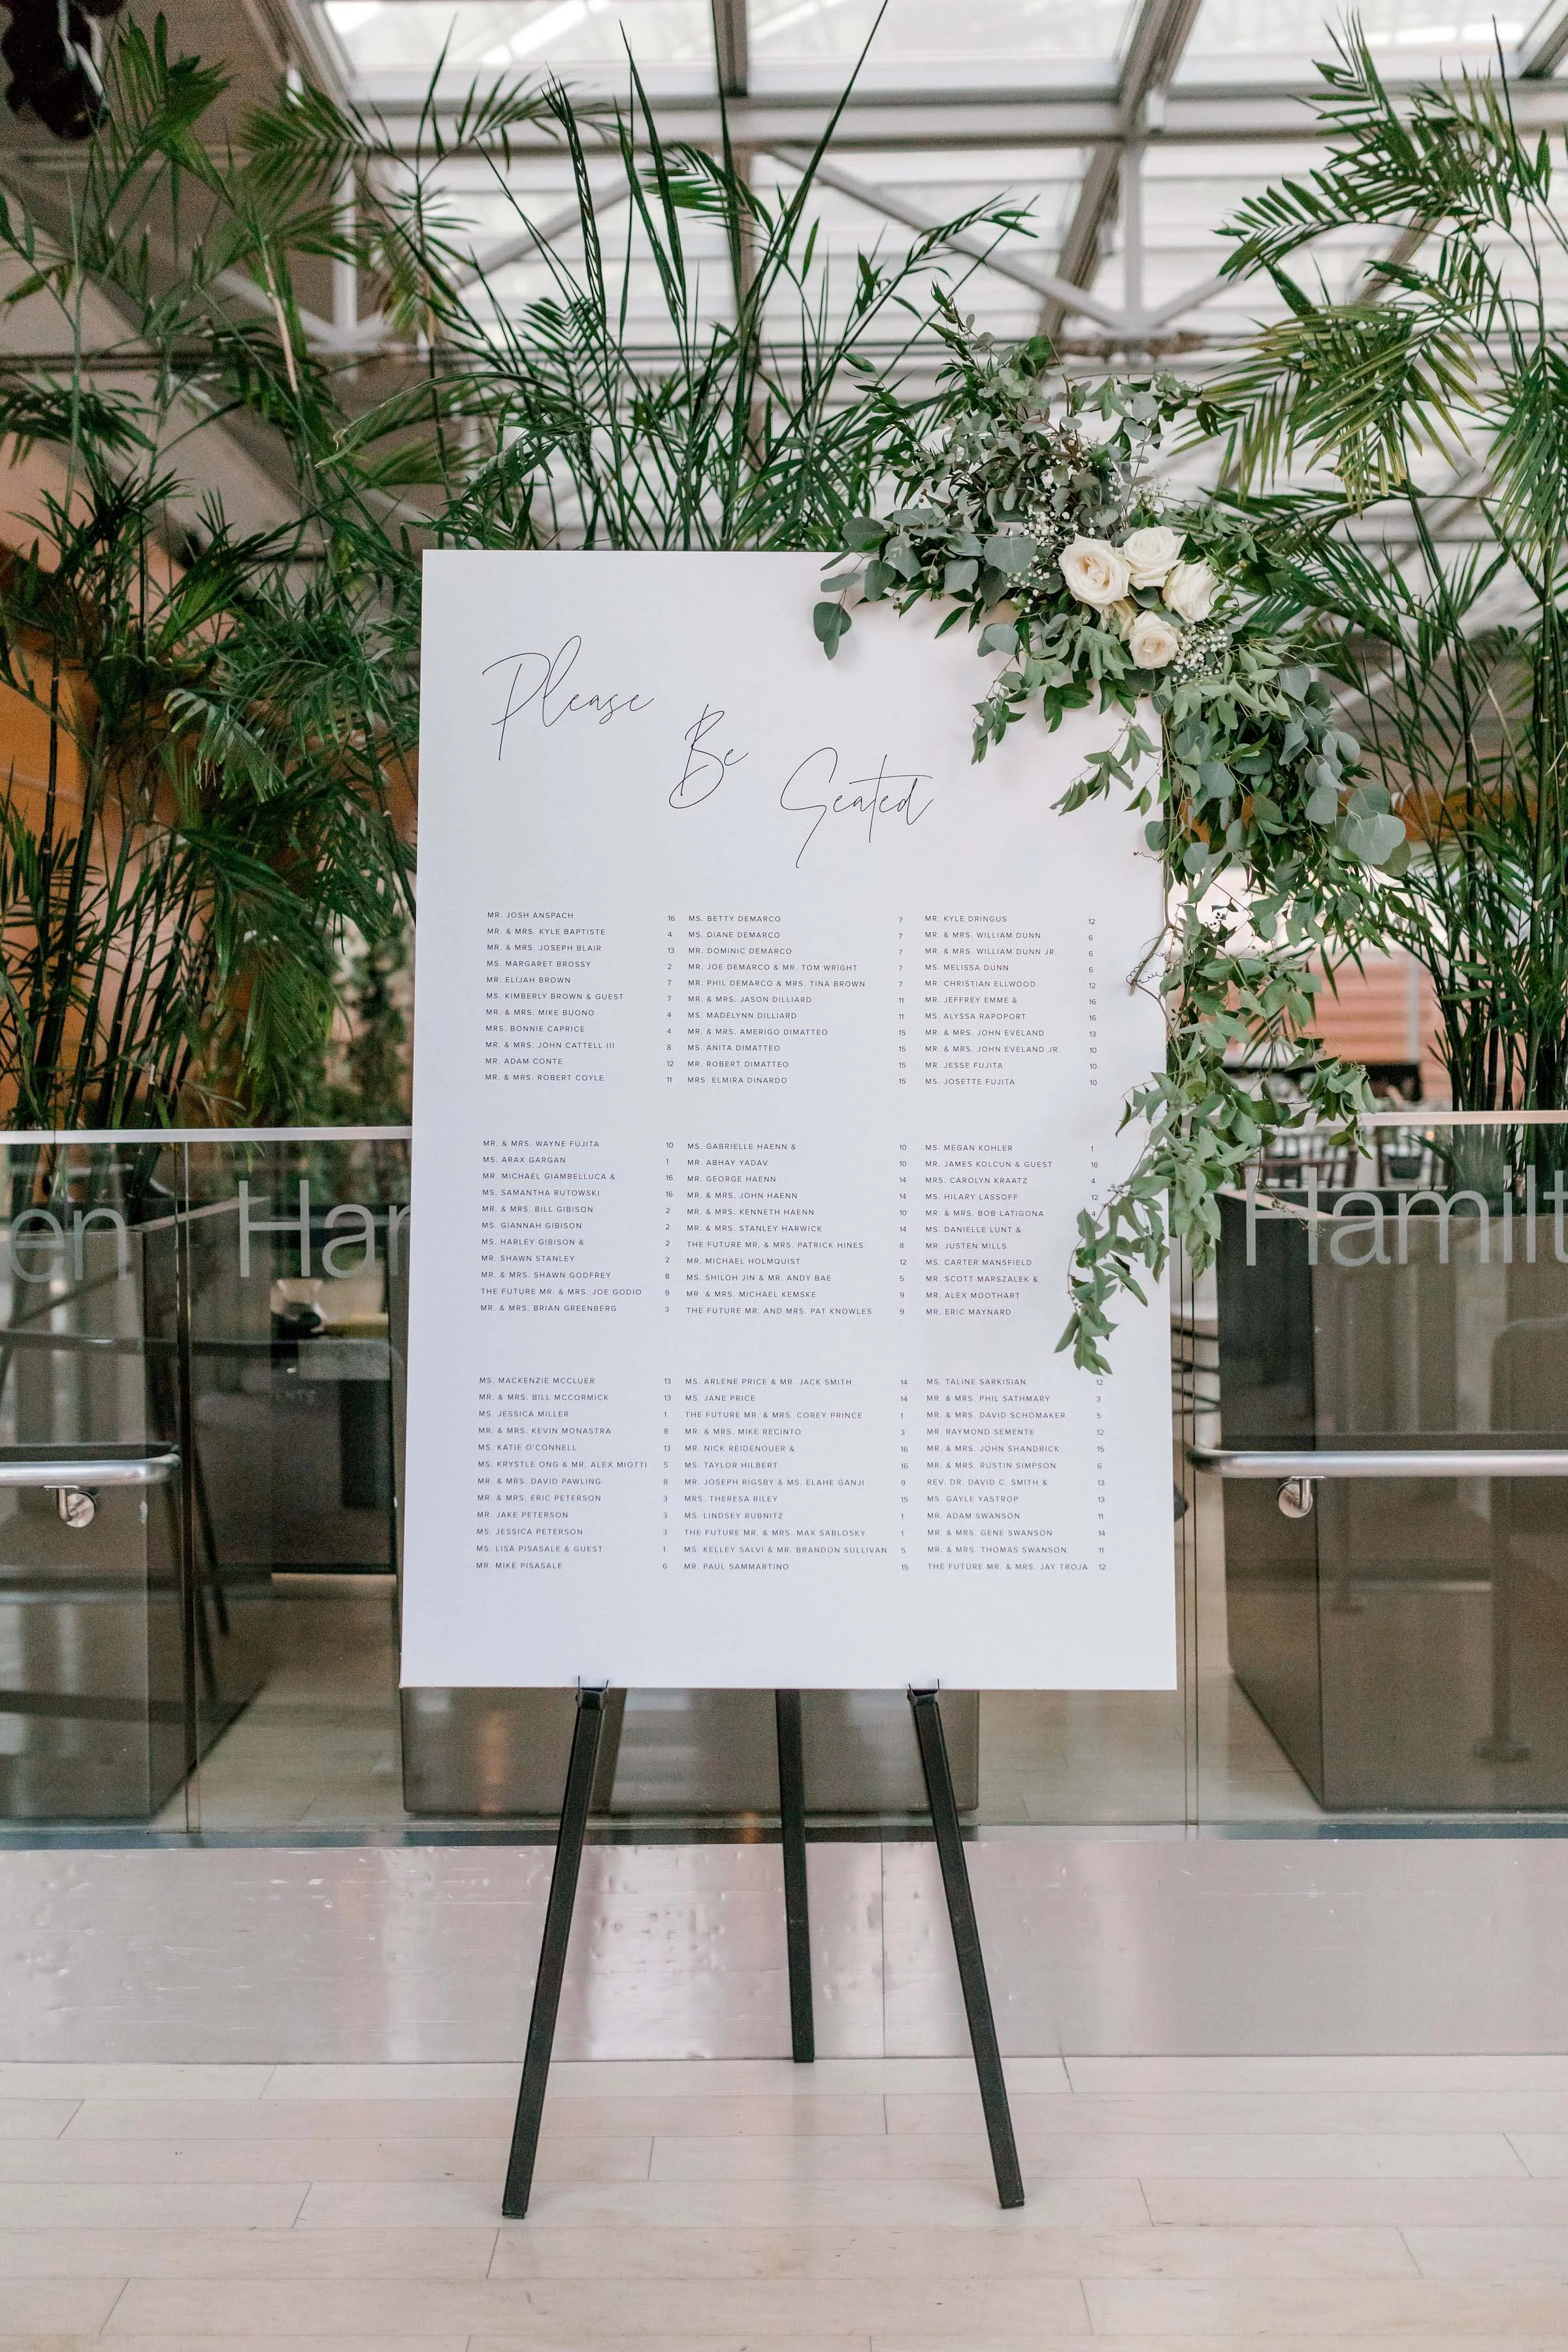 Please
Be
Seated
MR. JOSH ANSPACH 16
MR. & MRS. KYLE BAPTISTE 4
MR. & MRS. JOSEPH BLAIR 13
MS. MARGARET BROSSY 2
MR. ELIJAH BROWN 7
MS. KIMBERLY BROWN & GUEST 7
MR. & MRS. MIKE BUONO 4
MRS. BONNIE CAPRICE 4
MR. & MRS. JOHN CATTELL III 8
MR. ADAM CONTE 12
MR. & MRS. ROBERT COYLE 11
MS. BETTY DEMARCO 7
MS. DIANE DEMARCO 7
MR. DOMINIC DEMARCO 7
MR. JOE DEMARCO & MR. TOM WRIGHT 7
MR. PHIL DEMARCO & MRS. TINA BROWN 7
MR. & MRS. JASON DILLIARD 11
MS. MADELYNN DILLIARD 11
MR. & MRS. AMERIGO DIMATTEO 15
MS. ANITA DIMATTEO 15
MR. ROBERT DIMATTEO 15
MRS. ELMIRA DINARDO 15
MR. KYLE DRINGUS 12
MR. & MRS. WILLIAM DUNN 6
MR. & MRS. WILLIAM DUNN JR. 6
MS. MELISSA DUNN 6
MR. CHRISTIAN ELLWOOD 12
MR. JEFFREY EMME & 16
MS. ALYSSA RAPOPORT 16
MR. & MRS. JOHN EVELAND 13
MR. & MRS. JOHN EVELAND JR. 10
MR. JESSE FUJITA 10
MS. JOSETTE FUJITA 10
MR. & MRS. WAYNE FUJITA 10
MS. ARAX GARGAN 1
MR. MICHAEL GIAMBELLUCA & 16
MS. SAMANTHA RUTOWSKI 16
MR. & MRS. BILL GIBISON 2
MS. GIANNAH GIBISON 2
MS. HARLEY GIBISON & 2
MR. SHAWN STANLEY 2
MR. & MRS. SHAWN GODFREY 8
THE FUTURE MR. & MRS. JOE GODIO 9
MR. & MRS. BRIAN GREENBERG 3
MS. GABRIELLE HAENN & 10
MR. ABHAY YADAV 10
MR. GEORGE HAENN 14
MR. & MRS. JOHN HAENN 14
MR. & MRS. KENNETH HAENN 10
MR. & MRS. STANLEY HARWICK 14
THE FUTURE MR. & MRS. PATRICK HINES 8
MR. MICHAEL HOLMQUIST 12
MS. SHILOH JIN & MR. ANDY BAE 5
MR. & MRS. MICHAEL KEMSKE 9
THE FUTURE MR. AND MRS. PAT KNOWLES 9
MS. MEGAN KOHLER 1
MR. JAMES KOLCUN & GUEST 16
MRS. CAROLYN KRAATZ 4
MS. HILARY LASSOFF 12
MR. & MRS. BOB LATIGONA 4
MS. DANIELLE LUNT &
MR. JUSTEN MILLS
MS. CARTER MANSFIELD
MR. SCOTT MARSZALEK &
MR. ALEX MOOTHART
MR. ERIC MAYNARD
MS. MACKENZIE MCCLUER 13
MR. & MRS. BILL MCCORMICK 13
MS. JESSICA MILLER 1
MR. & MRS. KEVIN MONASTRA 8
MS. KATIE O'CONNELL 13
MS. KRYSTLE ONG & MR. ALEX MIOTTI 5
MR. & MRS. DAVID PAWLING 8
MR. & MRS. ERIC PETERSON 3
MR. JAKE PETERSON 3
MS. JESSICA PETERSON 3
MS. LISA PISASALE & GUEST 1
MR. MIKE PISASALE 6
MS. ARLENE PRICE & MR. JACK SMITH 14
MS. JANE PRICE 14
THE FUTURE MR. & MRS. COREY PRINCE 1
MR. & MRS. MIKE RECINTO 3
MR. NICK REIDENOUER & 16
MS. TAYLOR HILBERT 16
MR. JOSEPH RIGSBY & MS. ELAHE GANJI 9
MRS. THERESA RILEY 15
MS. LINDSEY RUBNITZ 1
THE FUTURE MR. & MRS. MAX SABLOSKY 1
MS. KELLEY SALVI & MR. BRANDON SULLIVAN 5
MR. PAUL SAMMARTINO 15
MS. TALINE SARKISIAN 12
MR. & MRS. PHIL SATHMARY 3
MR. & MRS. DAVID SCHOMAKER 5
MR. RAYMOND SEMENTE 12
MR. & MRS. JOHN SHANDRICK 15
MR. & MRS. RUSTIN SIMPSON 6
REV. DR. DAVID C. SMITH & 13
MS. GAYLE YASTROP 13
MR. ADAM SWANSON 11
MR. & MRS. GENE SWANSON 14
MR. & MRS. THOMAS SWANSON 11
THE FUTURE MR. & MRS. JAY TROJA 12
en
Har
Hamilt